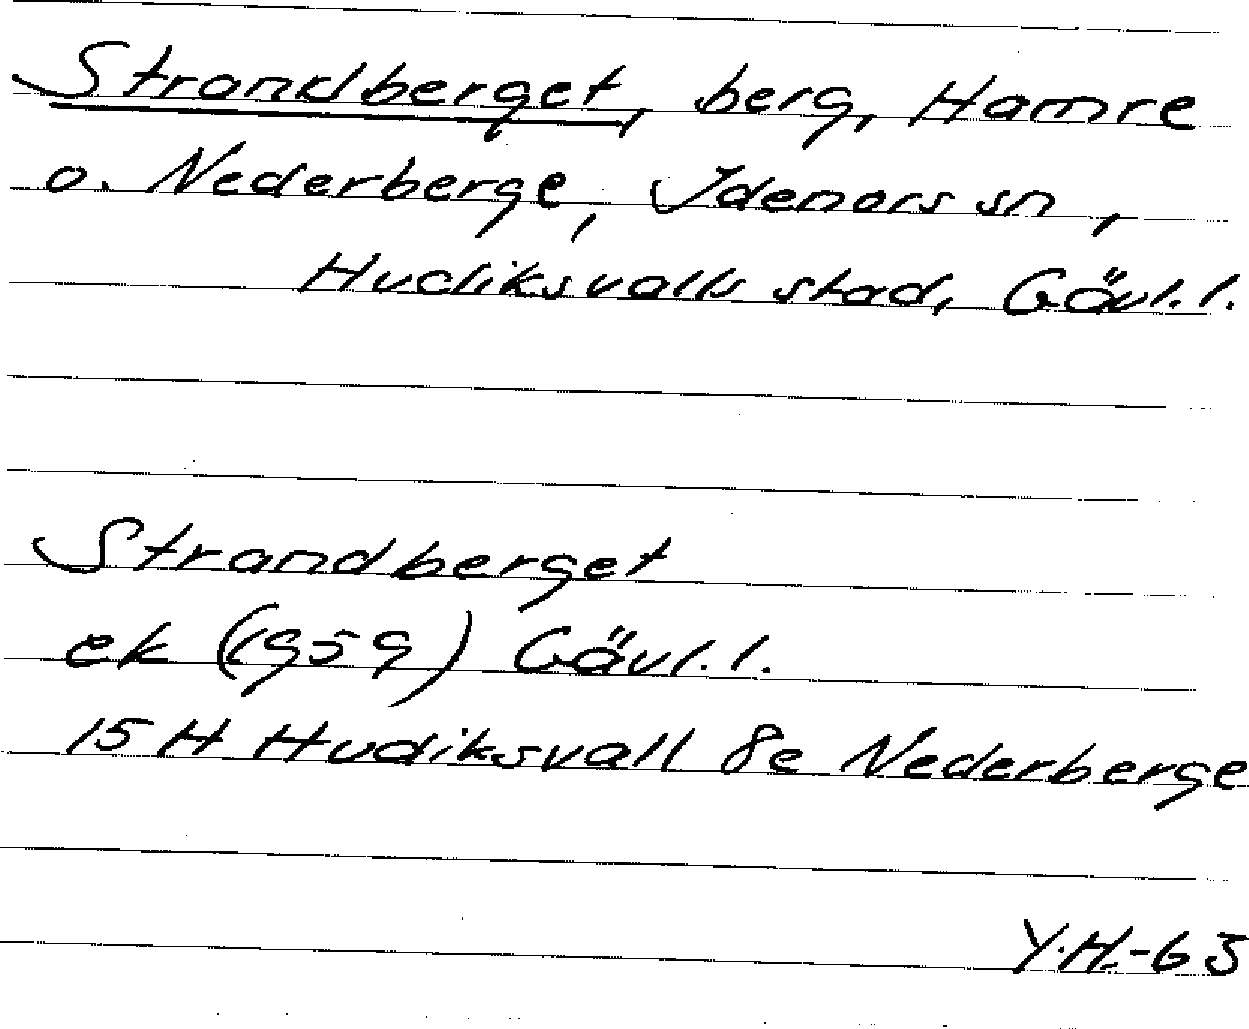 Strandberget, berg, Hamre
o. Nederberge, Idenors sn,
Hudiksvalls stad, Gävl.l.
Strandberget
ek (1959) Gävl.l.
15 H Hudiksvall 8e Nederberge
Y.H.-63